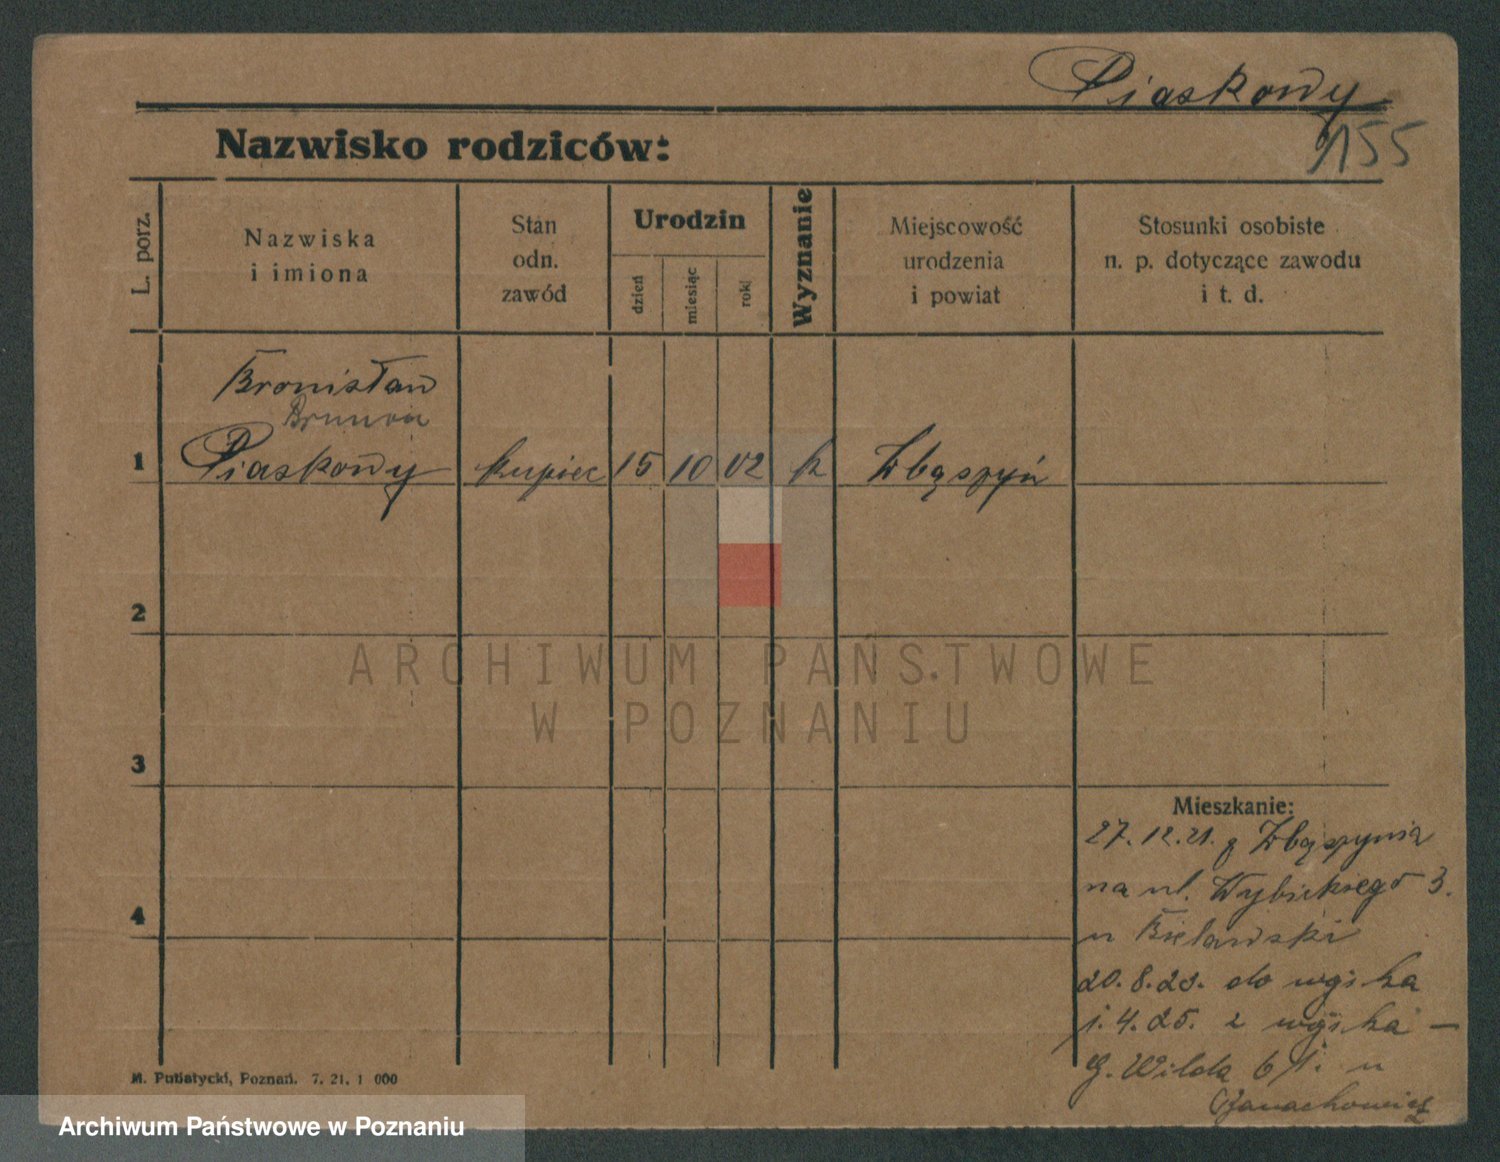 Piaskowy
155
Nazwisko rodziców:
L. porz.
Nazwiska
i imiona
Stan
odn.
zawód
Urodzin
dzień
miesiąc
rok
Wyznanie
Miejscowość
urodzenia
i powiat
Stosunki osobiste
n. p. dotyczące zawodu
i t. d.
Bronisław
Brunon
1 Piaskowy kupiec 15 10 02 k Zbąszyń
2
ARCHIWUM PAŃSTWOWE
W POZNANIU
3
Mieszkanie:
27.12.21. z Zbąszynia
na ul. Wybickiego 3.
4
u Bielawski
20.8.23. do wojska
1.4.25. z wojska —
G. Wilda 61. u
M. Putiatycki, Poznań. 7. 21. 1 000
Archiwum Państwowe w Poznaniu